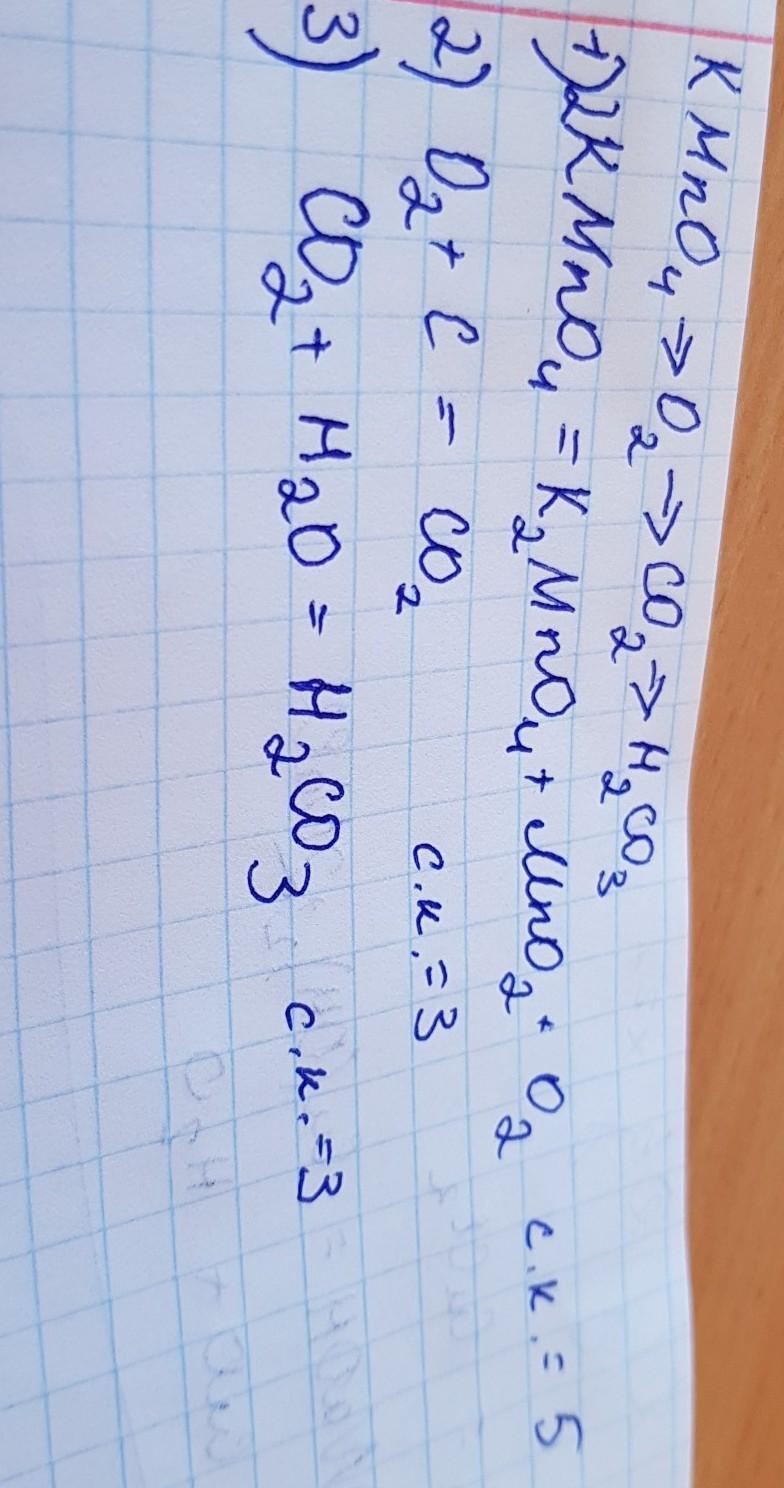 KMnO₄ → O₂ → CO₂ → H₂CO₃
1) 2KMnO₄ = K₂MnO₄ + MnO₂ + O₂ с.к. = 5
2) O₂ + C = CO₂ с.к. = 3
3) CO₂ + H₂O = H₂CO₃ с.к. = 3